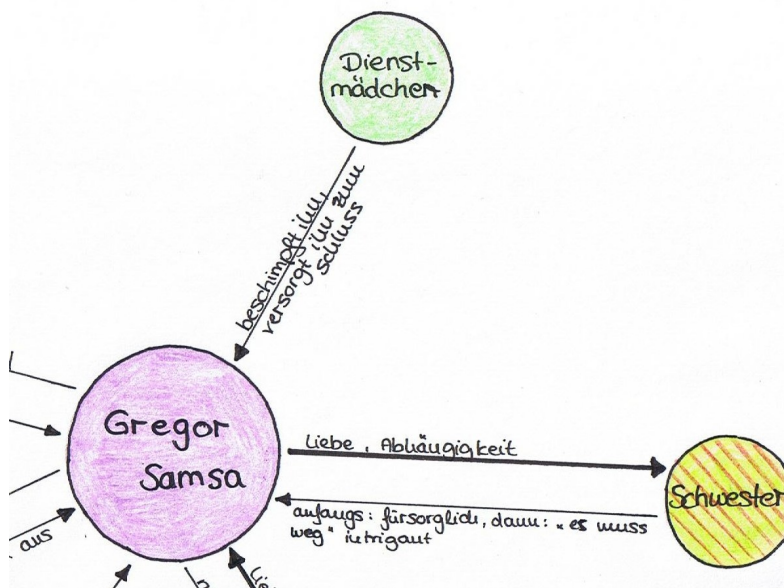 Dienst-
mädchen
beschimpft ihn,
versorgt ihn zum
schluss
Gregor
Samsa
Liebe, Abhängigkeit
Schwester
anfangs: fürsorglich, dann: „es muss
weg" intrigant
aus